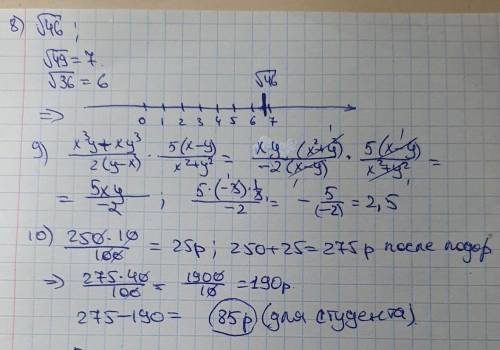 8) √46 ;
√49 = 7
√36 = 6
⇒ 0 1 2 3 4 5 6 7 √46
9) (x³y+xy³)/(2(y-x)) · (5(x-y))/(x²+y²) = (xy(x²+y²))/(-2(x-y)) · (5(x-y))/(x²+y²) =
= 5xy/-2 ; (5·(-3)·⅓)/-2 = -5/(-2) = 2,5
10) (250·10)/100 = 25р ; 250+25=275р после подор
⇒ (275·40)/100 = 1900/10 = 190р.
275-190= 85р (для студента)